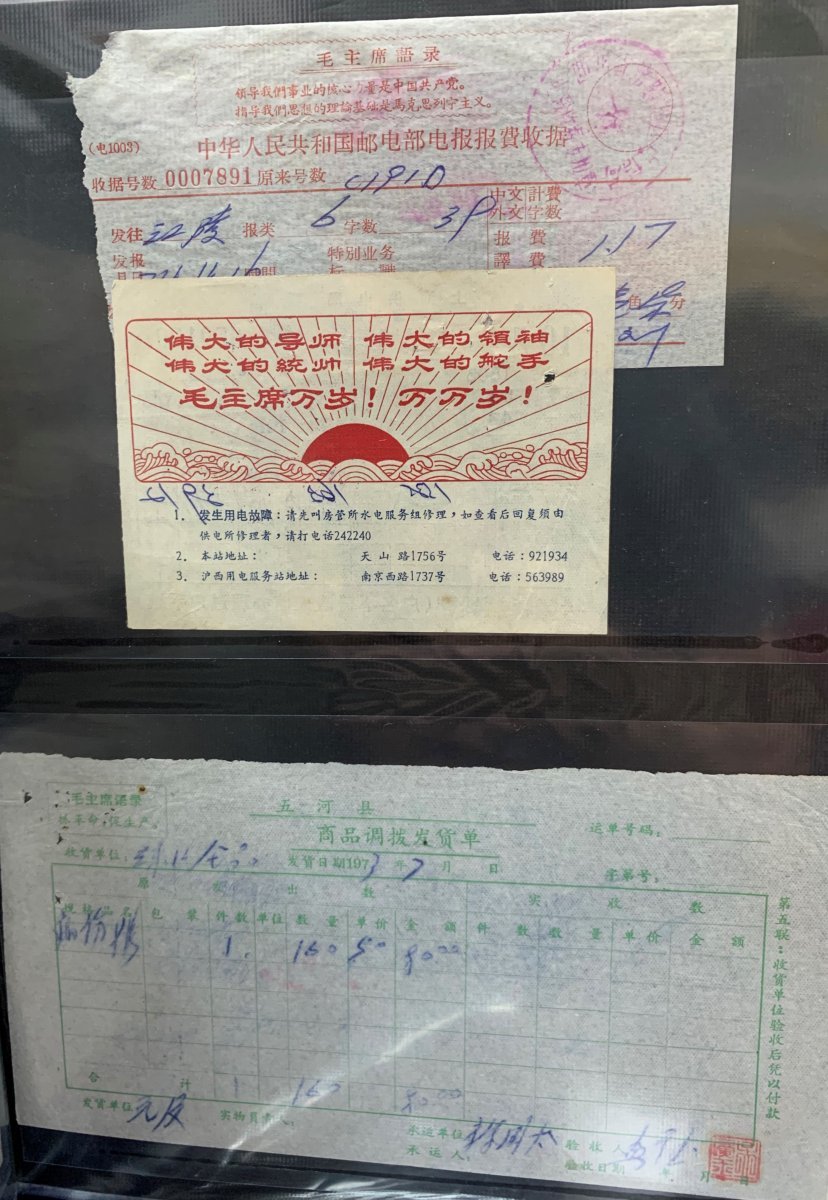 毛主席語录
领导我們事业的核心力量是中国共产党。
指导我們思想的理論基础是馬克思列宁主义。
(电1003)
中华人民共和国邮电部电报报費收据
收据号数 0007891 原来号数 C191D
发往 江陵 报类 6 字数 39
中文計費
外文字数
报費 1.17
譯費
发报
特别业务
角 分
伟大的导师 伟大的領袖
伟大的統帅 伟大的舵手
毛主席万岁！万万岁！
1. 发生用电故障：请先叫房管所水电服务组修理，如查看后回复须由
供电所修理者，请打电话242240
2. 本站地址： 天山路1756号 电话：921934
3. 沪西用电服务站地址： 南京西路1737号 电话：563989
毛主席语录
抓革命，促生产。
五河县
商品调拨发货单
运单号码：
收货单位：
发货日期1973年7月 日
字第号：
原发出数 实收数
品名 包装 件数 单位 数量 单价 金额 件数 数量 单价 金额
1. 160 50 80.00
合计 1 160 80.00
发货单位
承运单位
承运人：
验收人
验收日期 年 月
第五联：收货单位验收后凭以付款